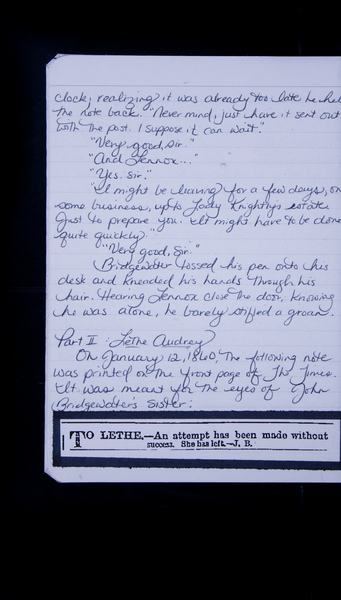 clock, realizing it was already too late he held
the note back. "Never mind, just have it sent out
with the post. I suppose it can wait."
"Very good, Sir."
"And Lennox..."
"Yes. Sir."
"I might be leaving for a few days, on
some business, up to Lady Knightly's estate.
Just to prepare you. It might have to be done
quite quickly."
"Very good, Sir."
Bridgewater tossed his pen onto his
desk and kneaded his hands through his
hair. Hearing Lennox close the door, knowing
he was alone, he barely stifled a groan.
Part II: Lethe Audrey
On January 12, 1840, The following note
was printed on the front page of The Times.
It was meant for the eyes of John
Bridgewater's Sister:
TO LETHE.—An attempt has been made without
success. She has left.—J. B.